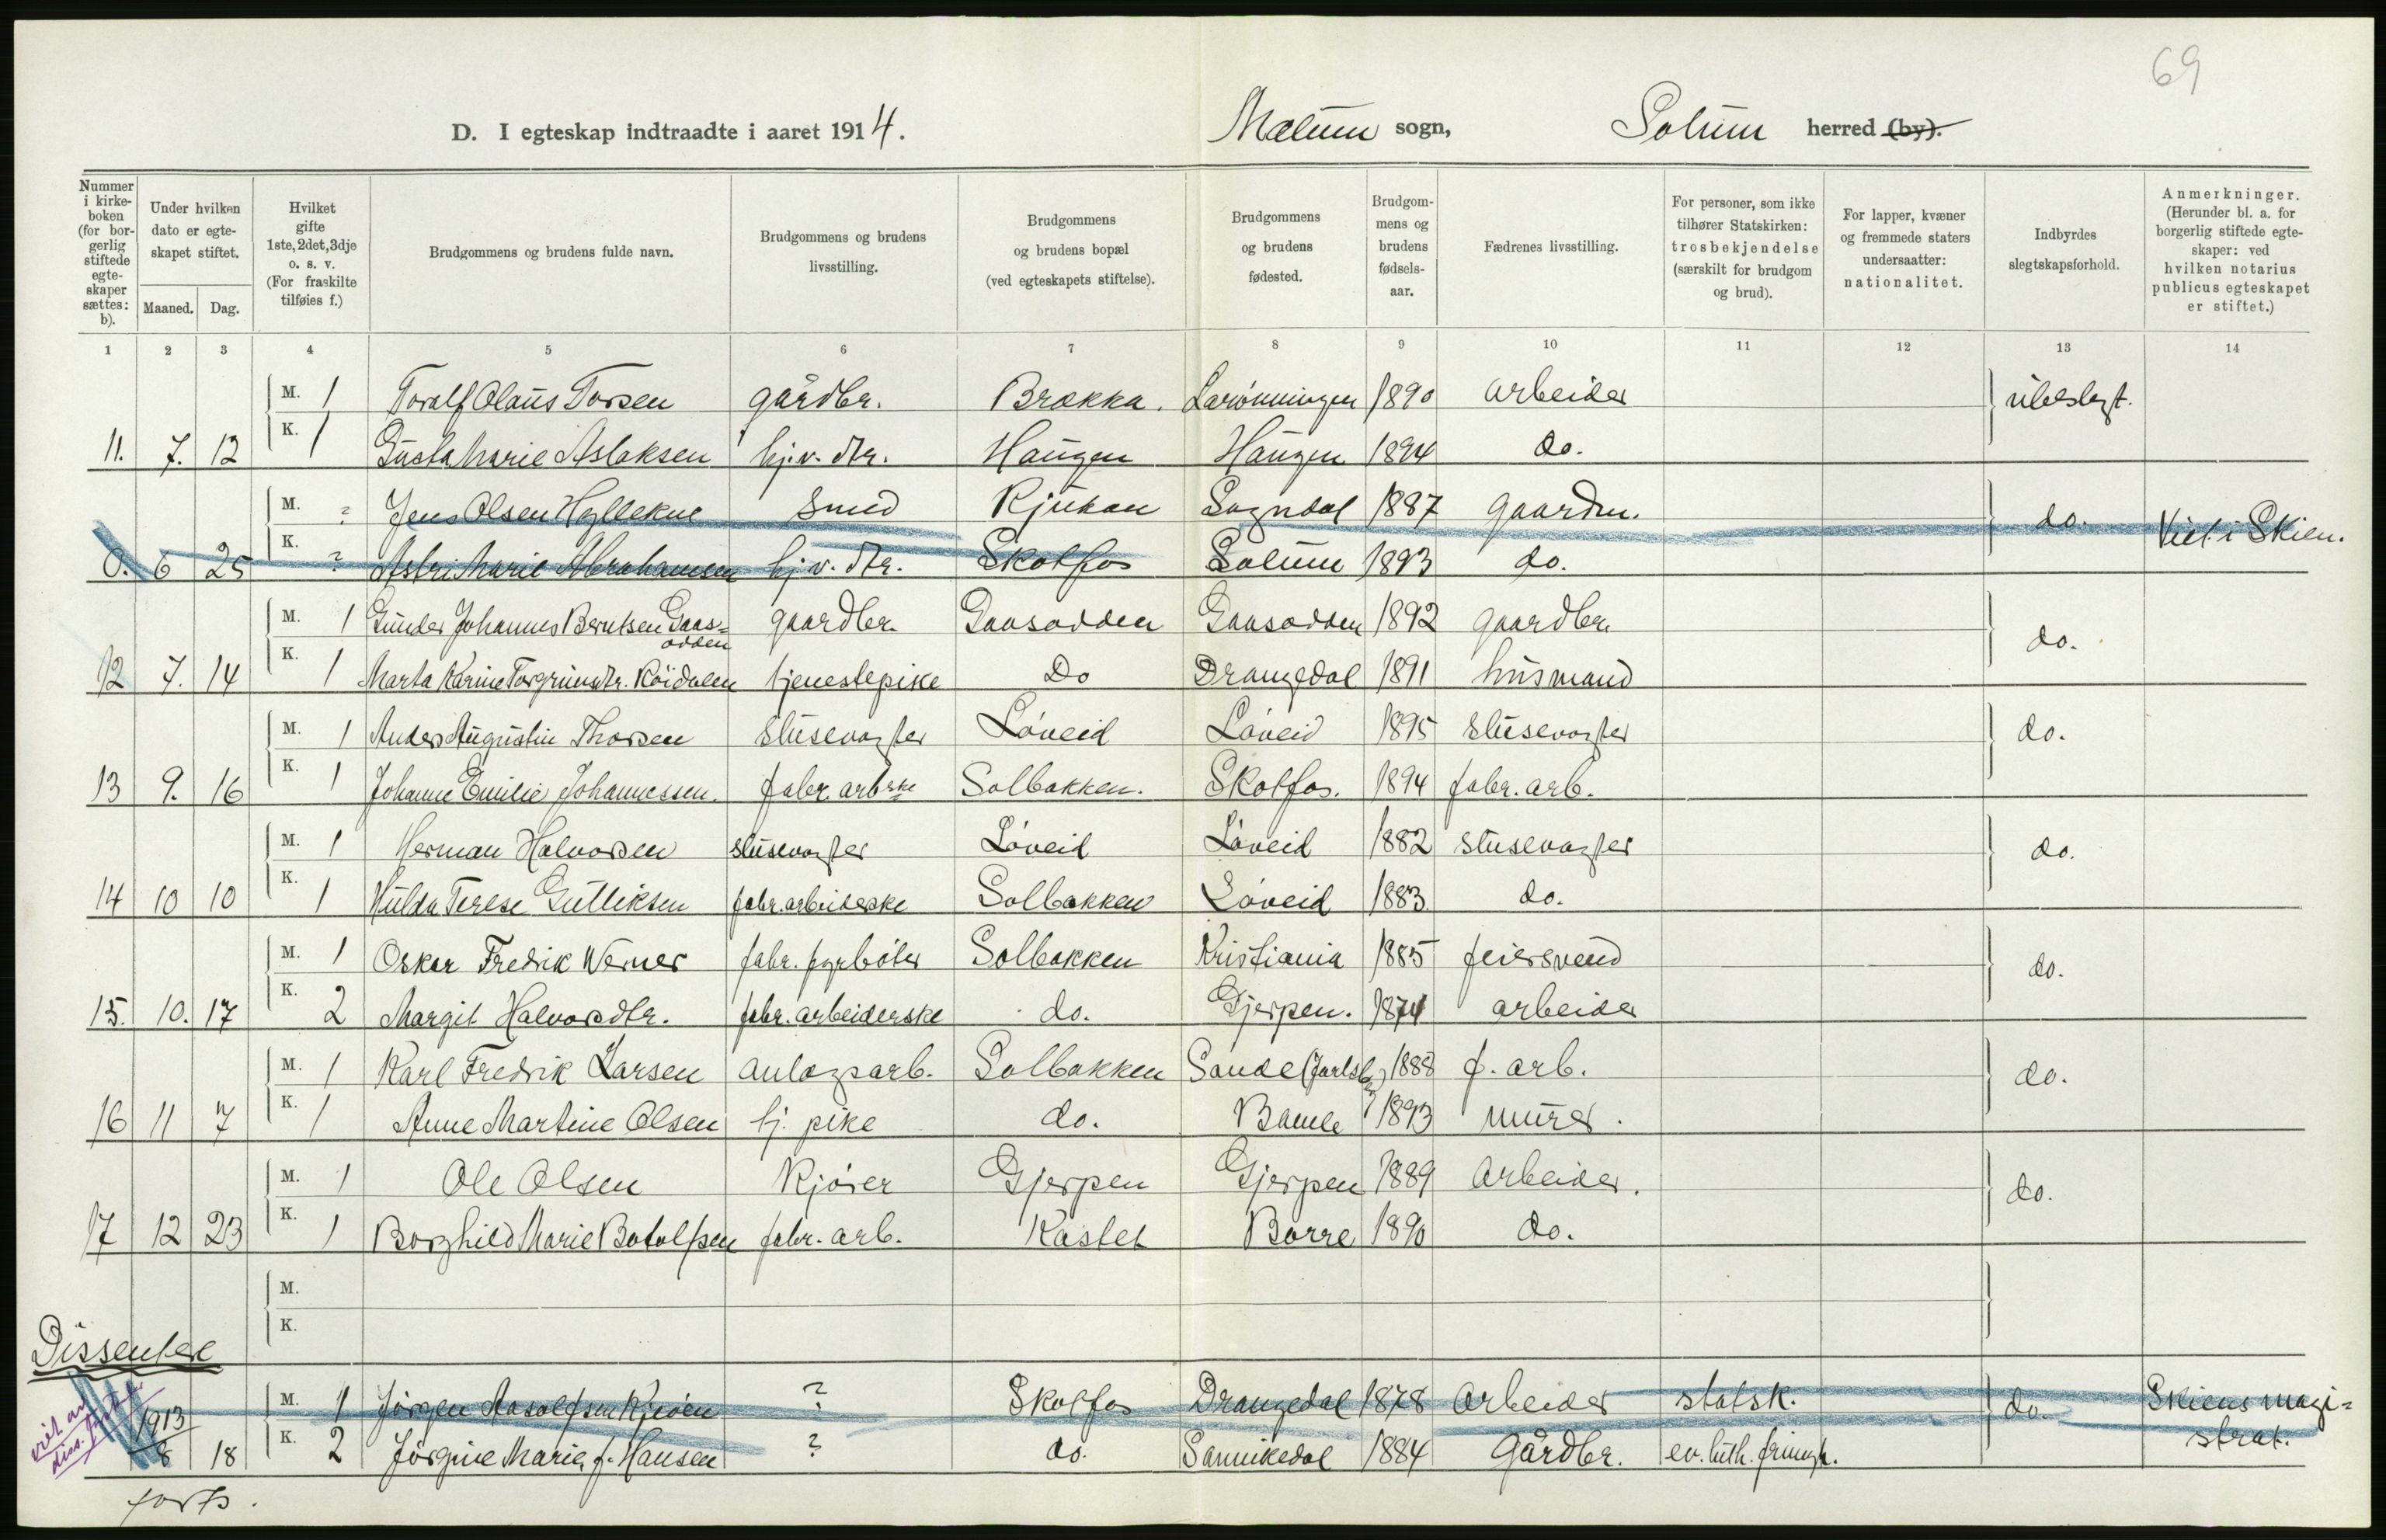 69
D. I egteskap indtraadte i aaret 1914. Melum sogn, Solum herred (by).
Nummer i kirkeboken (for borgerlig stiftede egteskaper sættes: b). Under hvilken dato er egteskapet stiftet. Maaned. Dag. Hvilket gifte 1ste, 2det, 3dje o. s. v. (For fraskilte tilføies f.) Brudgommens og brudens fulde navn. Brudgommens og brudens livsstilling. Brudgommens og brudens bopæl (ved egteskapets stiftelse). Brudgommens og brudens fødested. Brudgommens og brudens fødselsaar. Fædrenes livsstilling. For personer, som ikke tilhører Statskirken: trosbekjendelse (særskilt for brudgom og brud). For lapper, kvæner og fremmede staters undersaatter: nationalitet. Indbyrdes slegtskapsforhold. Anmerkninger. (Herunder bl. a. for borgerlig stiftede egteskaper: ved hvilken notarius publicus egteskapet er stiftet.)
1 2 3 4 5 6 7 8 9 10 11 12 13 14
M. 1 Toralf Olaus Torsen gårdbr. Brekka. 1890 arbeider ubeslegt.
11. 7. 12 K. 1 Gusta Marie Aslaksen hj.v. dtr. Haugen Haugen 1894 do.
M. ? Jens Olsen Hyllekve Smed Rjukan Sogndal 1887 gaardm. do. Viet i Skien.
0. 6 25 K. ? Astri Marie Abrahamsen hj.v. dtr. Skotfos Solum 1893 do.
M. 1 Gunder Johannes Berntsen Gaasodden gaardbr. Gaasodden Gaasodden 1892 gaardbr. do.
12 7. 14 K. 1 Marta Karine Torgrimsdtr. Röidalen tjenestepike Do Drangedal 1891 husmand
M. 1 Anders Augustin Thorsen slusevogter Löveid Löveid 1895 slusevogter do.
13 9. 16 K. 1 Johanne Emilie Johannessen. fabr. arbske Solbakken. Skotfos. 1894 fabr. arb.
M. 1 Herman Halvorsen slusevogter Löveid Löveid 1882 slusevogter do.
14 10 10 K. 1 Hulda Terese Gulliksen fabr. arbeiderske Solbakken Löveid 1883 do.
M. 1 Oskar Fredrik Werner fabr. fyrböter Solbakken Kristiania 1885 feiersvend do.
15. 10. 17 K. 2 Margit Halvorsdtr. fabr. arbeiderske do. Gjerpen. 1874 arbeider
M. 1 Karl Fredrik Larsen anlegsarb. Solbakken Sande (Jarlsbg) 1888 f. arb. do.
16 11 7 K. 1 Anne Martine Olsen tj. pike do. Bamle 1893 murer.
M. 1 Ole Olsen Kjörer Gjerpen Gjerpen 1889 arbeider. do.
17 12 23 K. 1 Borghild Marie Botolfsen fabr. arb. Kastet Borre 1890 do.
M.
K.
Dissentere
M. 1 Jörgen Aasolfsen Kjeöen ? Skotfos Drangedal 1878 arbeider statsk. do. Skiens magi-
1913
8 18 K. 2 Jörgine Marie f. Hansen ? do. Sannikedal 1884 Gårdbr. ev. luth. frimgh. strat.
forts.